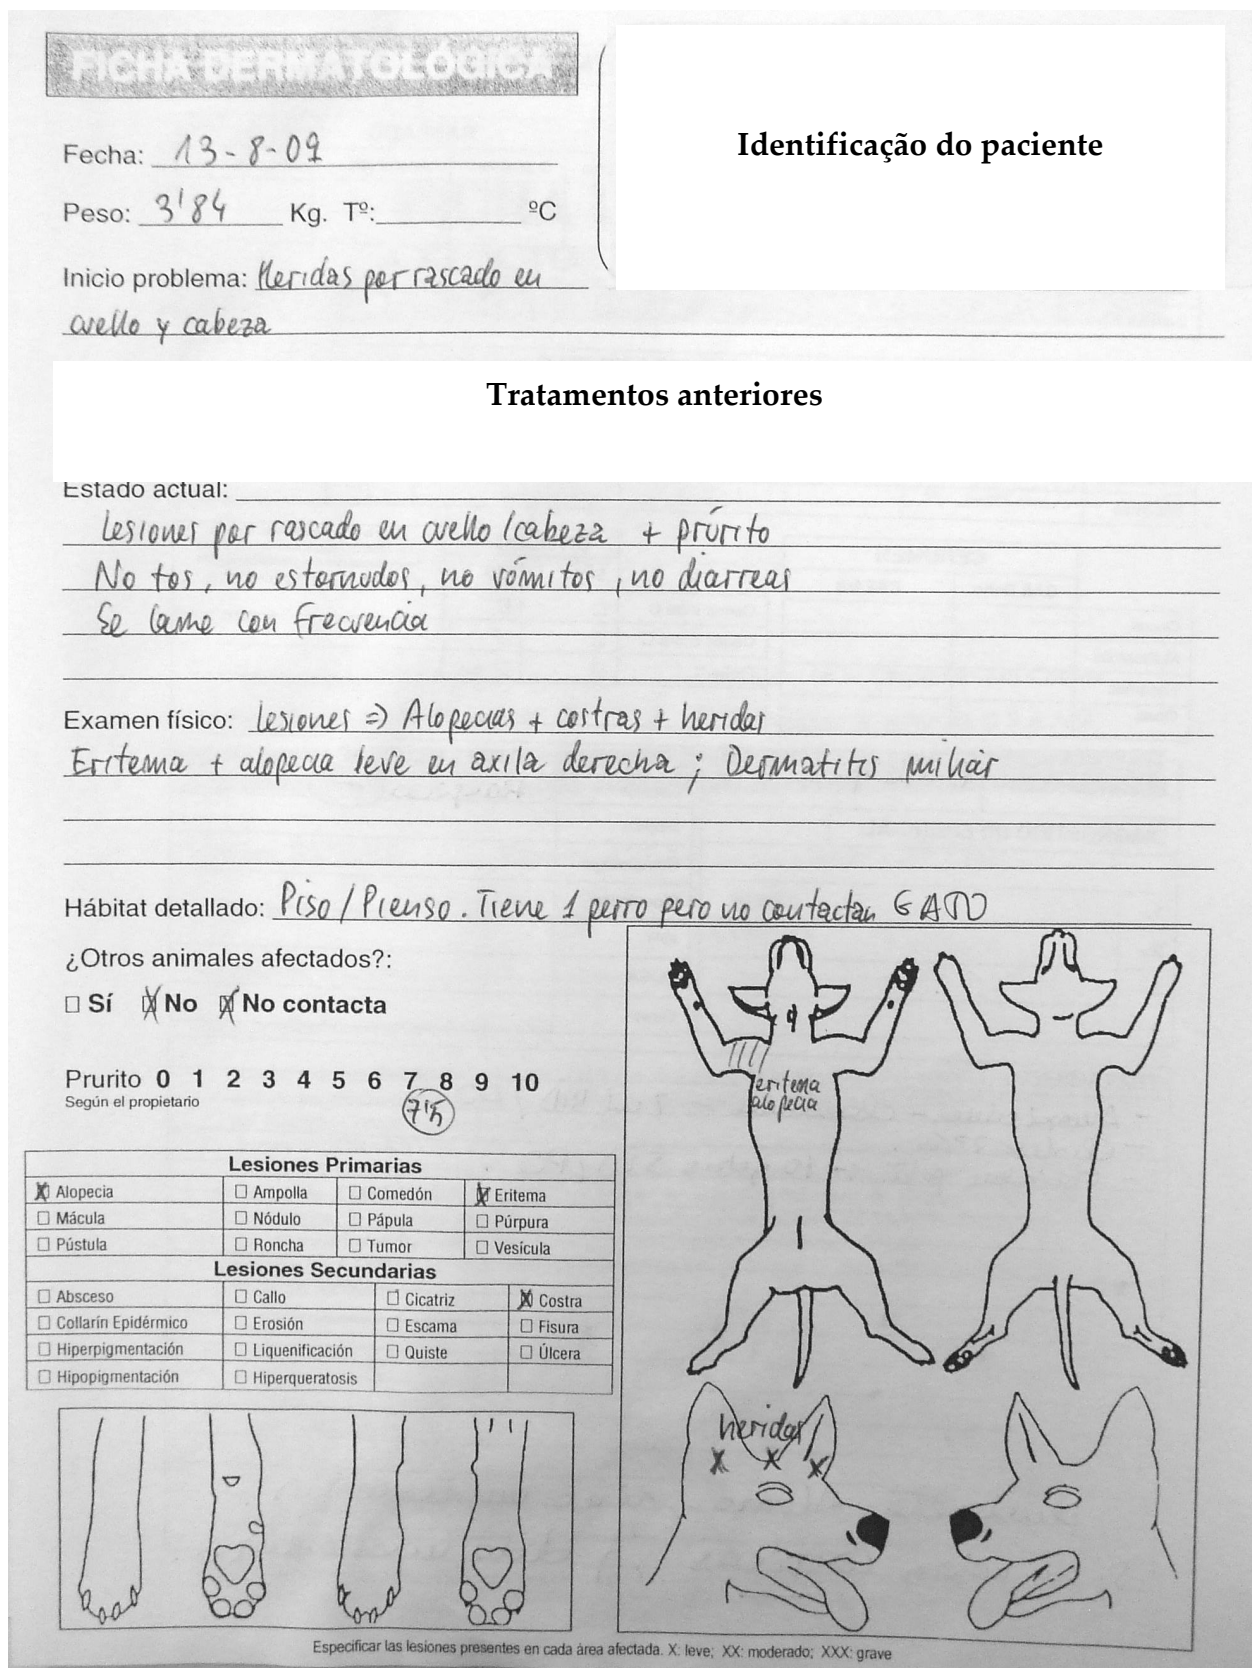 FICHA DERMATOLÓGICA
Identificação do paciente
Fecha: 13-8-09
Peso: 3'84 Kg. Tº: ºC
Inicio problema: Heridas por rascado en
cuello y cabeza
Tratamentos anteriores
Estado actual:
Lesiones por rascado en cuello/cabeza + prúrito
No tos, no estornudos, no vómitos, no diarreas
Se lame con frecuencia
Examen físico: Lesiones => Alopecias + costras + heridas
Eritema + alopecia leve en axila derecha; Dermatitis miliar
Hábitat detallado: Piso/Pienso. Tiene 1 perro pero no contactan GATO
¿Otros animales afectados?:
Sí No No contacta
Prurito 0 1 2 3 4 5 6 7 8 9 10
Según el propietario
7'5
eritema
alopecia
Lesiones Primarias
Alopecia Ampolla Comedón Eritema
Mácula Nódulo Pápula Púrpura
Pústula Roncha Tumor Vesícula
Lesiones Secundarias
Absceso Callo Cicatriz Costra
Collarín Epidérmico Erosión Escama Fisura
Hiperpigmentación Liquenificación Quiste Úlcera
Hipopigmentación Hiperqueratosis
heridas
X X X
Especificar las lesiones presentes en cada área afectada. X: leve; XX: moderado; XXX: grave